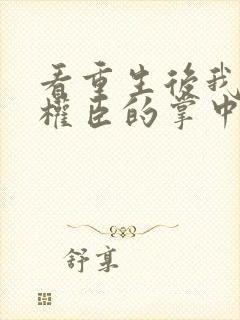 看重生後我
權臣的掌中
舒享